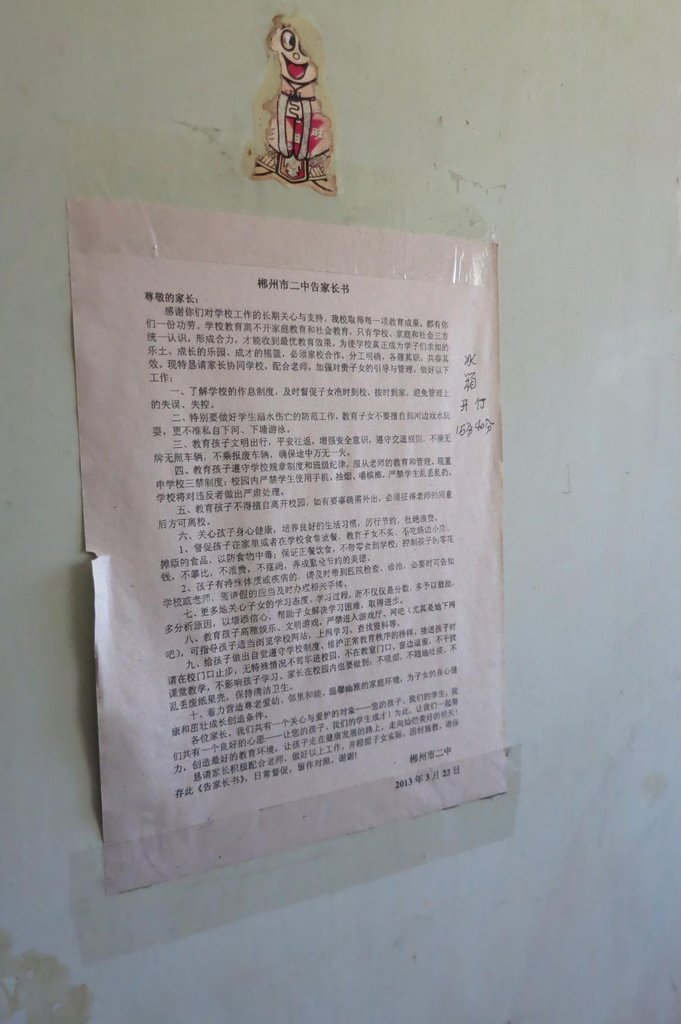 旺
郴州市二中告家长书
尊敬的家长：
感谢你们对学校工作的长期关心与支持，我校取得每一项教育成果，都有你
们一份功劳。学校教育离不开家庭教育和社会教育，只有学校、家庭和社会三方
统一认识，形成合力，才能收到最优教育效果。为使学校真正成为学子们求知的
乐土、成长的乐园、成才的摇篮，必须家校合作，分工明确，各履其职，共奏其
效。现特恳请家长协同学校，配合老师，加强对贵子女的引导与管理，做好以下
工作：
一、了解学校的作息制度，及时督促子女准时到校，按时到家，避免管理上
的失误、失控。
二、特别要做好学生溺水伤亡的防范工作，教育子女不要擅自到河边戏水玩
耍，更不准私自下河、下塘游泳。
三、教育孩子文明出行，平安往返，增强安全意识，遵守交通规则，不乘无
牌无照车辆，不乘报废车辆，确保途中万无一失。
四、教育孩子遵守学校规章制度和班级纪律，服从老师的教育和管理，现重
申学校三禁制度：校园内严禁学生使用手机、抽烟、嚼槟榔，严禁学生乱丢乱扔，
学校将对违反者做出严肃处理。
五、教育孩子不得擅自离开校园，如有要事确需外出，必须征得老师的同意
后方可离校。
六、关心孩子身心健康，培养良好的生活习惯，厉行节约，杜绝浪费。
1、督促孩子在家里或者在学校食堂就餐，教育子女不买、不吃路边小店、
摊贩的食品，以防食物中毒；保证正餐饮食，不带零食到学校；控制孩子的零花
钱，不攀比，不浪费，不摆阔，养成勤俭节约的美德。
2、孩子有特殊体质或疾病的，请及时带到医院检查、诊治，必要时可告知
学校或老师，需请假的应当及时办理相关手续。
七、更多地关心子女的学习态度、学习过程，而不仅仅是分数，多予以鼓励，
多分析原因，以增添信心，帮助子女解决学习困难，取得进步。
八、教育孩子高雅娱乐、文明游戏，严禁进入游戏厅、网吧（尤其是地下网
吧），可指导孩子适当浏览学校网站，上网学习、查找资料等。
九、给孩子做出自觉遵守学校制度、维护正常教育秩序的榜样，接送孩子时
请在校门口止步，无特殊情况不驾车进校园，不在教室门口、窗边逗留，不干扰
课堂教学，不影响孩子学习，家长在校园内也要做到：不吸烟，不随地吐痰，不
乱丢废纸果壳，保持清洁卫生。
十、着力营造尊老爱幼、邻里和睦、温馨幽雅的家庭环境，为子女的身心健
康和茁壮成长创造条件。
各位家长，我们共有一个关心与爱护的对象——您的孩子，我们的学生；我
们共有一个良好的心愿——让您的孩子，我们的学生成才！为此，让我们一起努
力，创造最好的教育环境，让孩子走在健康发展的路上，走向灿烂美好的明天！
恳请家长积极配合老师，做好以上工作，并根据子女实际，因材施教，请保
存此《告家长书》，日常督促，留作对照。谢谢！
郴州市二中
2013 年 3 月 23 日
水
箱
开 灯
15分40分